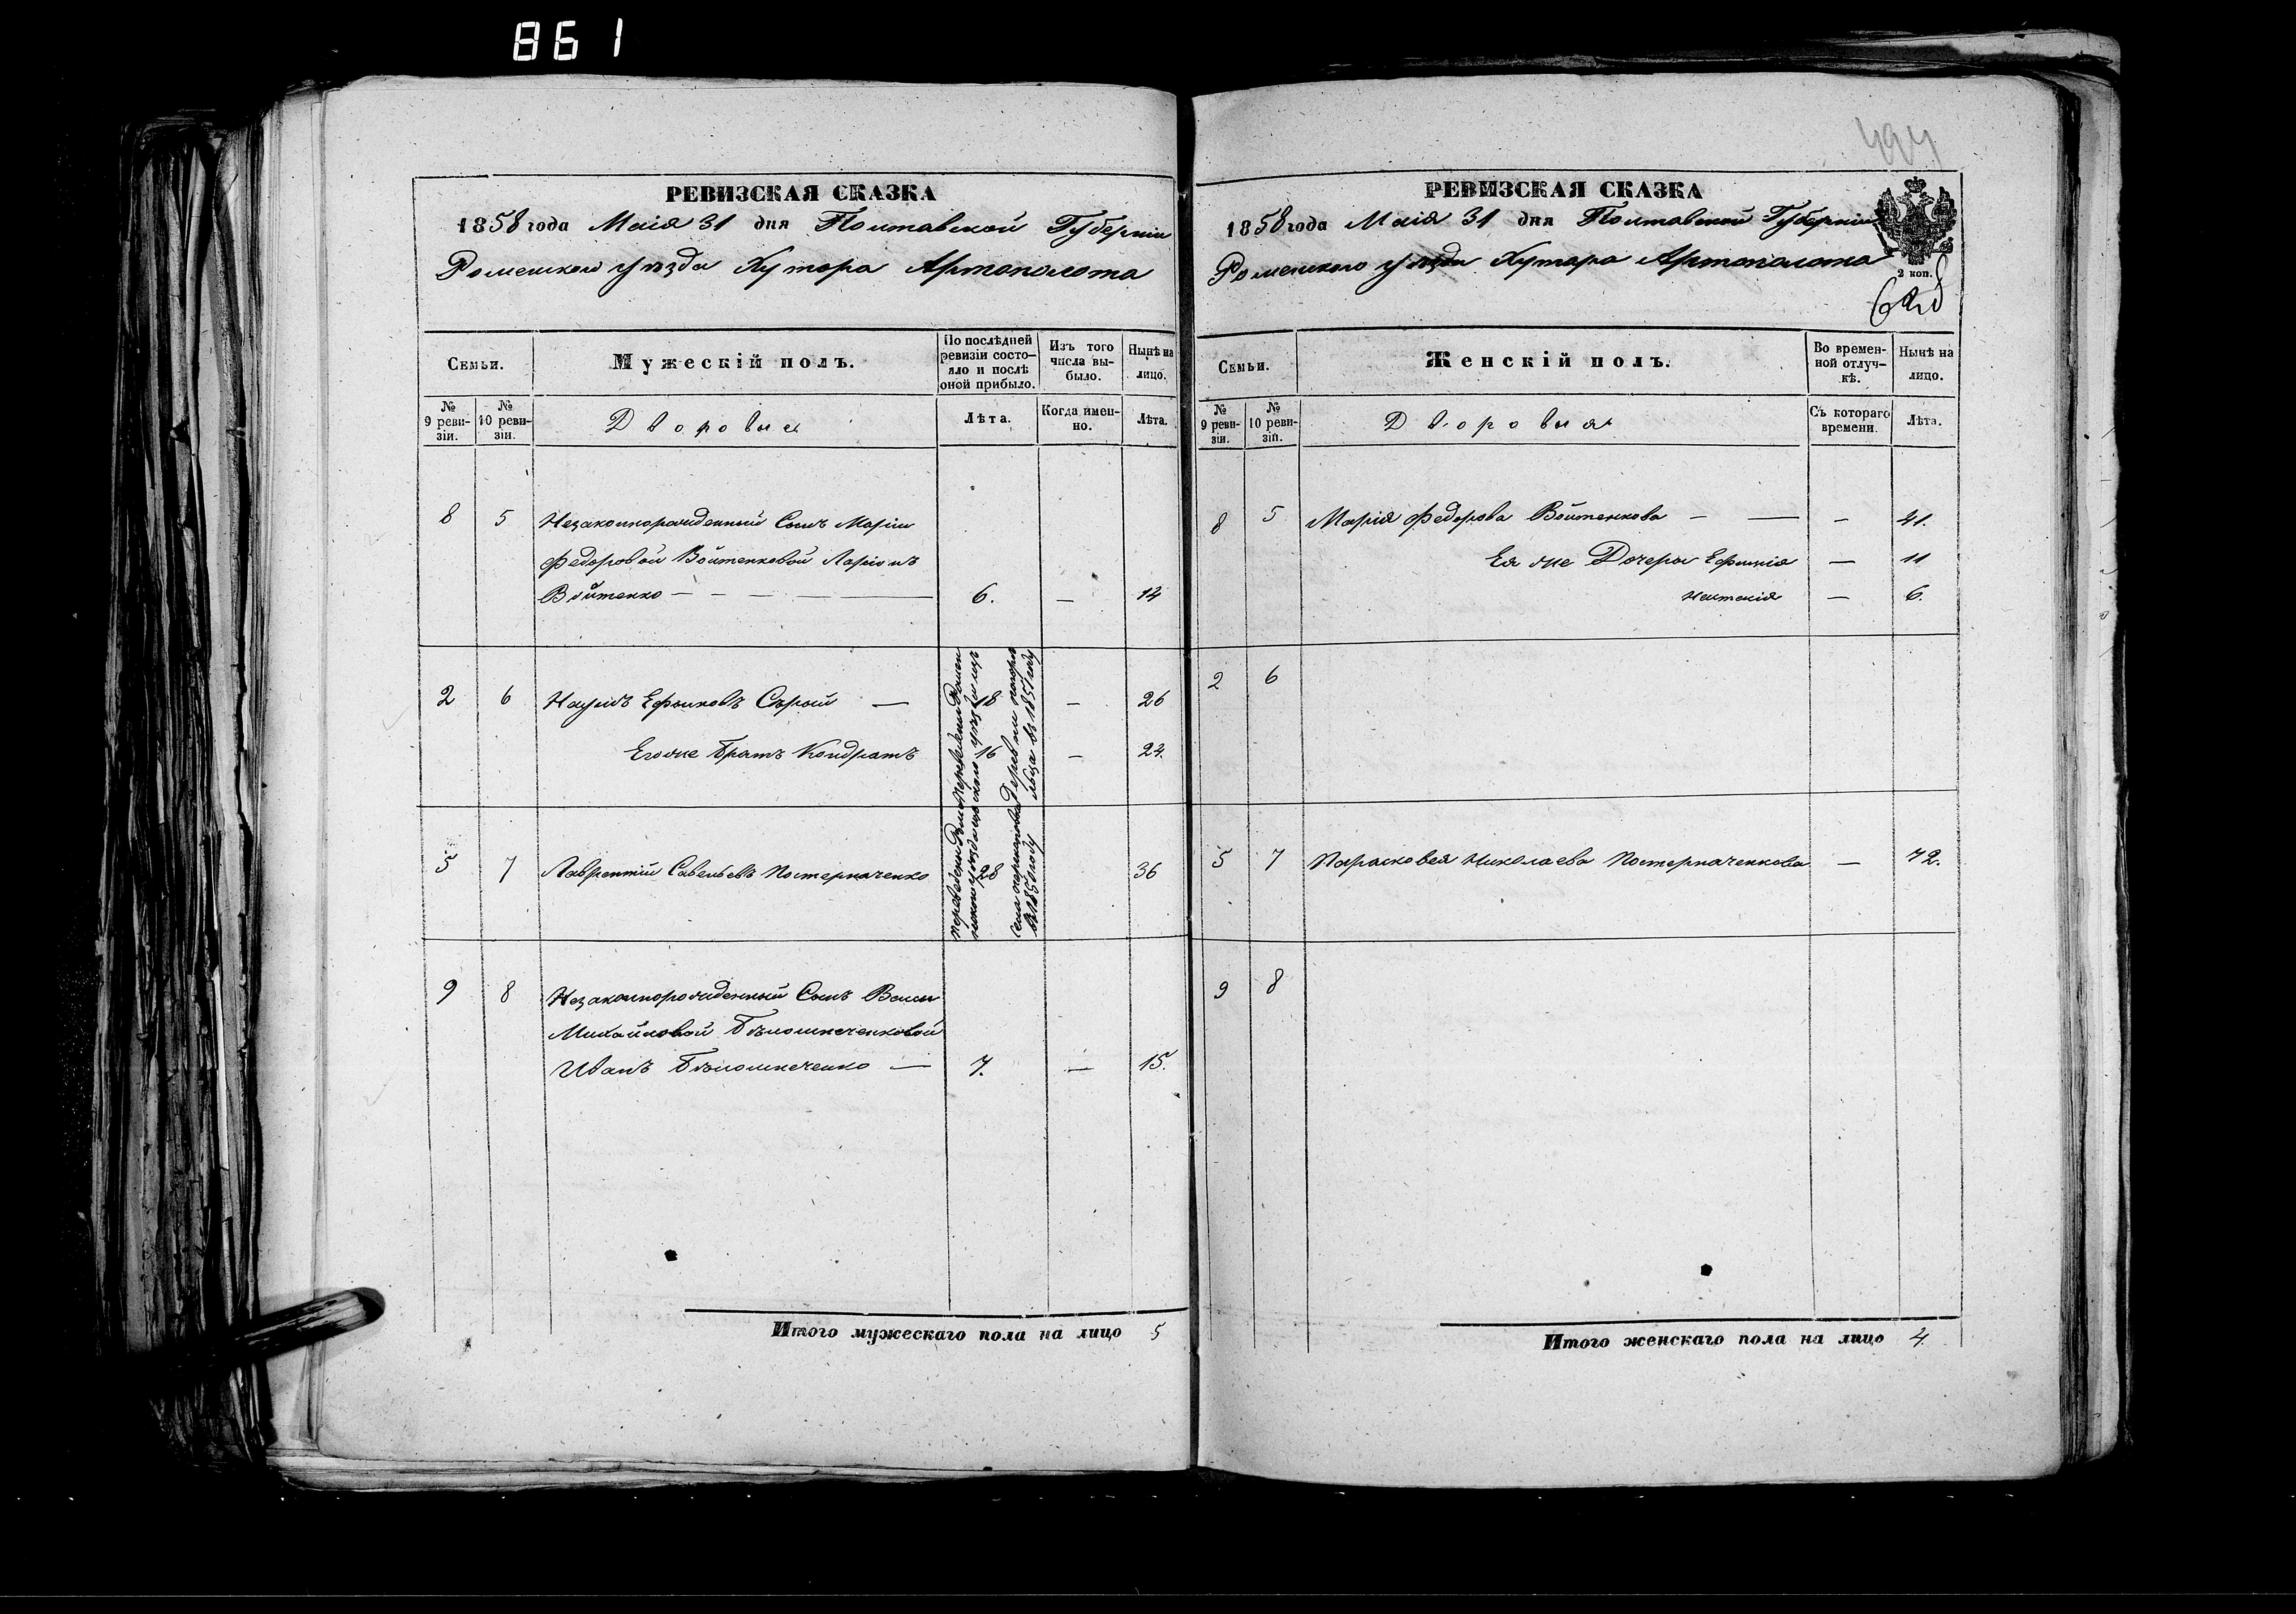 861
494
РЕВИЗСКАЯ СКАЗКА
1858 года Маія 31 дня Полтавской Губерніи
Роменского уѣзда Хутора Артополота
Семьи.
Мужескій полъ.
По послѣдней ревизіи состояло и послѣ оной прибыло.
Изъ того числа выбыло.
Нынѣ на лицо.
№ 9 ревизіи.
№ 10 ревизіи.
Дворовые
Лѣта.
Когда именно.
Лѣта.
8 5 Незаконорожденный Сынъ Маріи
Федоровой Войтенковой Ларіонъ
Войтенко — 6. — 14
2 6 Наумъ Ефимовъ Сѣрый — 18 — 26
Егоже братъ Кондратъ 16 — 24.
5 7 Лаврентій Савельевъ Костермаченко 28 36
9 8 Незаконорожденный Сынъ
Михайловой
Иванъ — 7. — 15.
Итого мужескаго пола на лицо 5
РЕВИЗСКАЯ СКАЗКА
1858 года Маія 31 дня Полтавской Губерніи
Роменского уѣзда Хутора Артополота
2 коп.
Семьи.
Женскій полъ.
Во временной отлучкѣ.
Нынѣ на лицо.
№ 9 ревизіи.
№ 10 ревизіи.
Дворовыя
Съ котораго времени.
Лѣта.
8 5 Марія Федорова Войтенкова — — 41.
Ея же Дочери Ефимія — 11
— 6.
2 6
5 7 Парасковея Николаева — 72.
9 8
Итого женскаго пола на лицо 4.